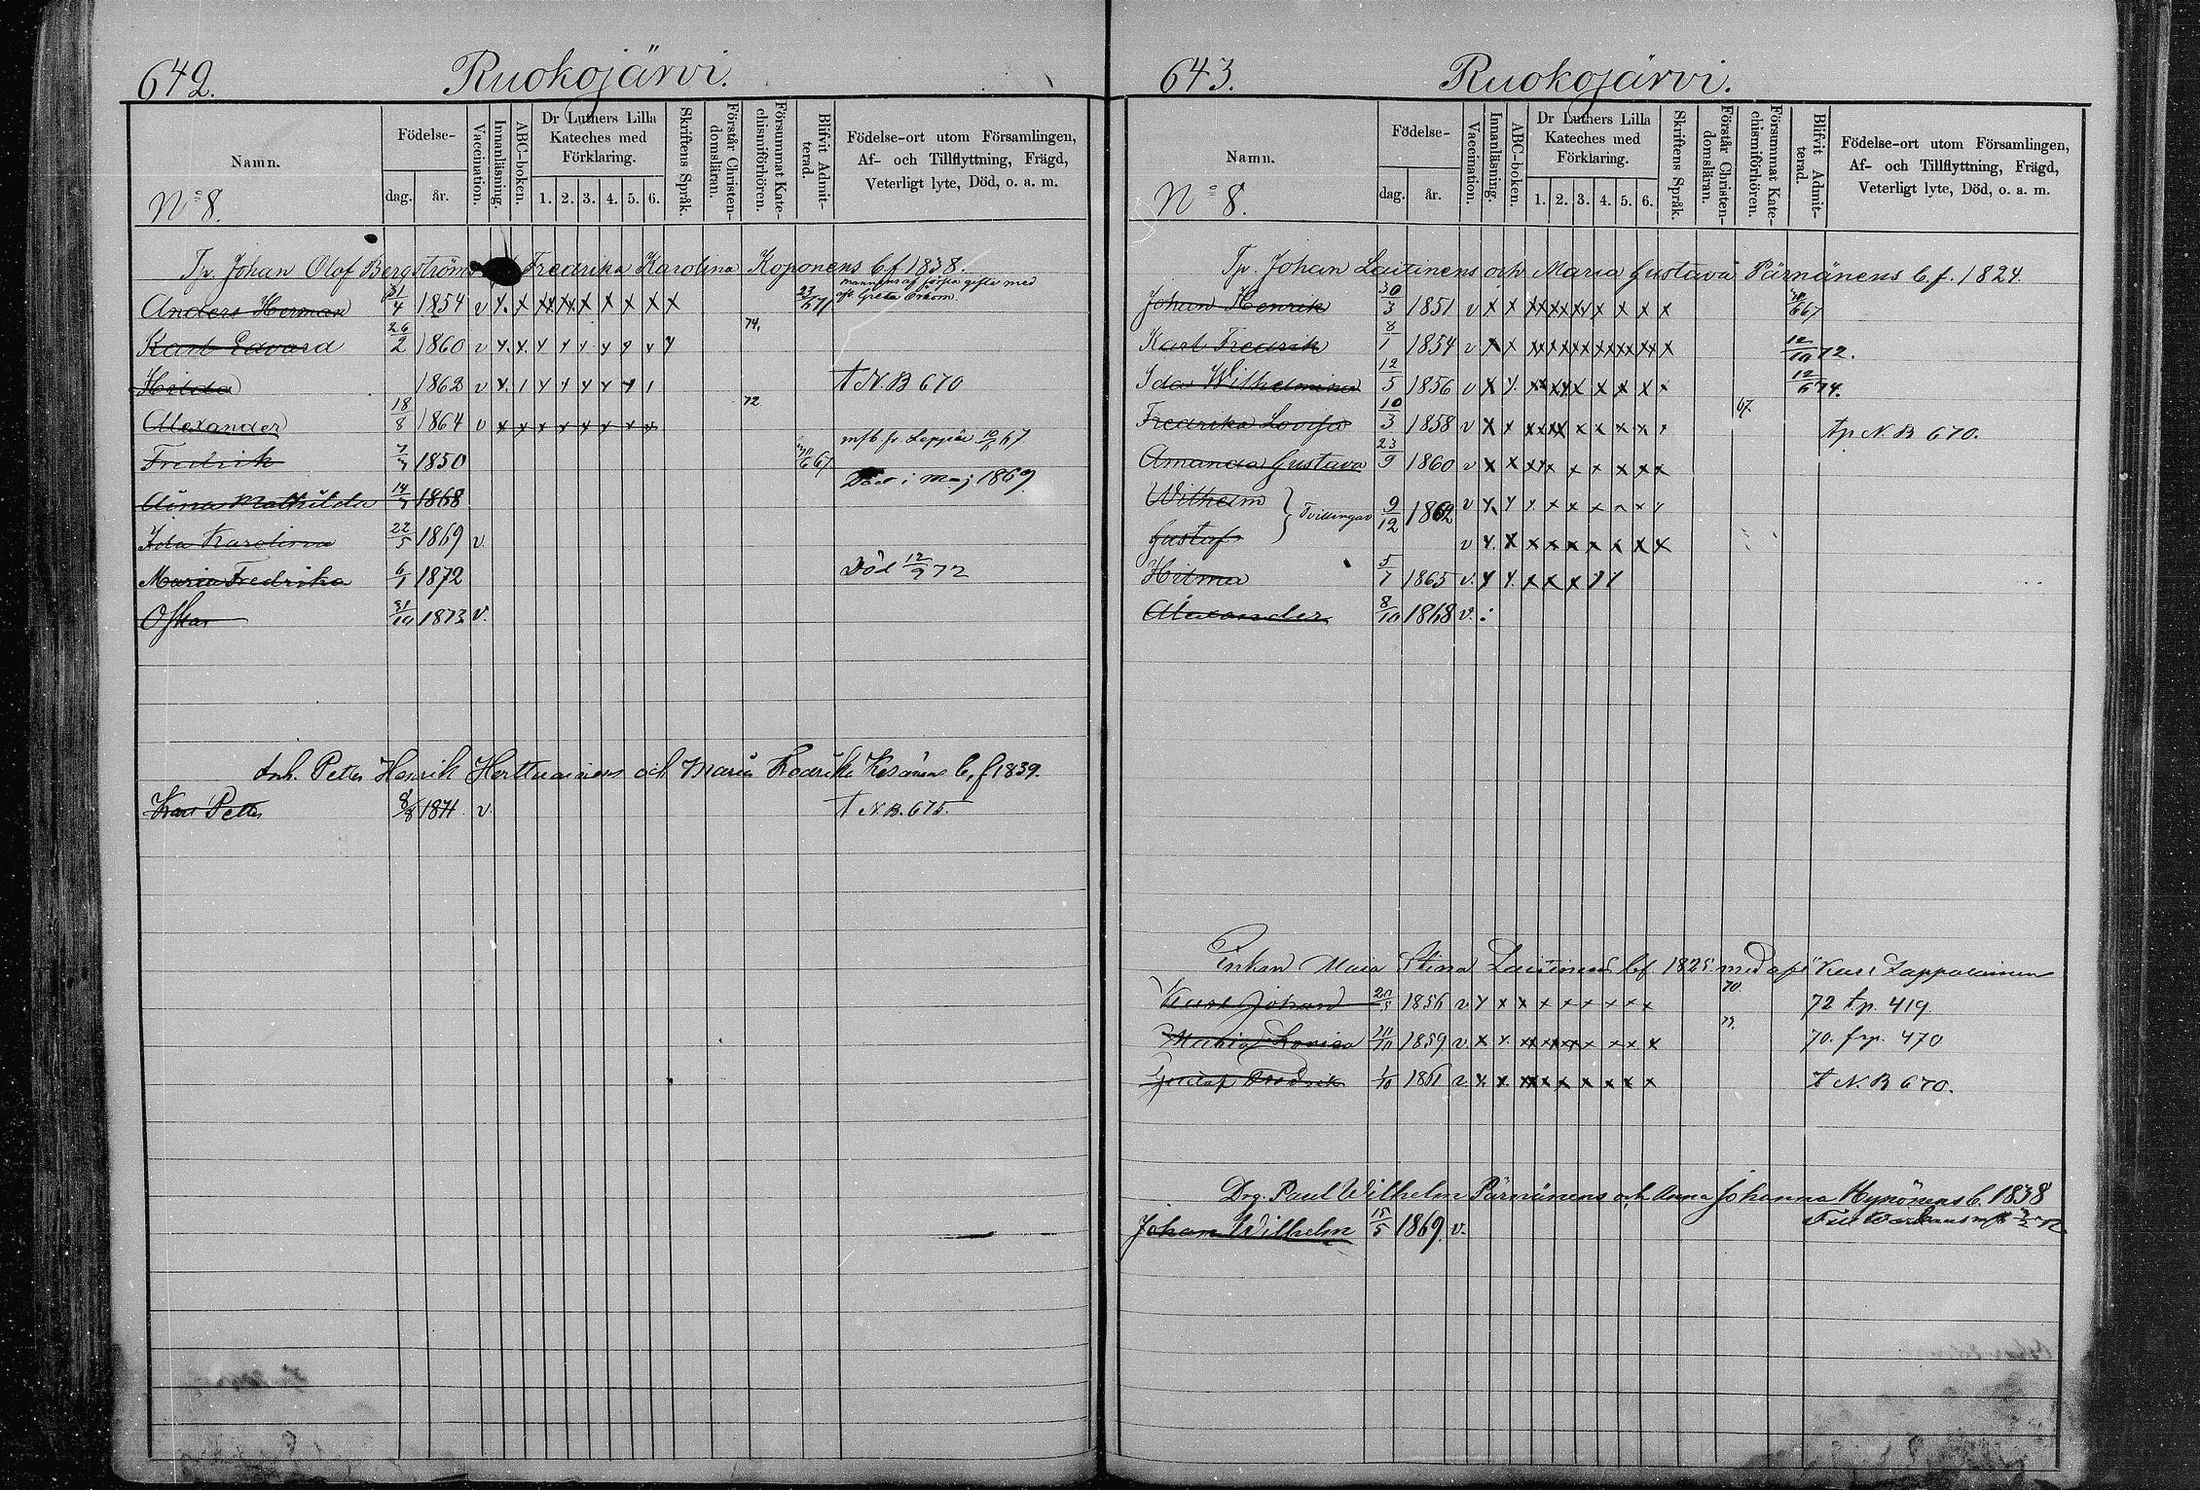 642.
Ruokojärvi.
Namn.
No 8.
Födelse-
dag.
år.
Vaccination.
Innanläsning.
ABC-boken.
Dr Luthers Lilla
Kateches med
Förklaring.
1. 2. 3. 4. 5. 6.
Skriftens Språk.
Förstår Christen-
domsläran.
Försummat Kate-
chismiförhören.
Blifvit Admit-
terad.
Födelse-ort utom Församlingen,
Af- och Tillflyttning, Frägd,
Veterligt lyte, Död, o. a. m.
Tp. Johan Olof Bergströms Fredrika Karolina Koponens b f 1838.
mannens af förra gifte med
Greta
Anders Herman 31/4 1854 v x x x x x x x x x x 23/6 67
Karl Edvard 26/2 1860 v x x x x x x x x x 74,
Hilda 1862 v x 1 x x x x x 1 t N. B 670
Alexander 18/8 1864 v x x x x x x x x 72
Fredrik 7/7 1850 67 mfb fr. Leppäv. 67.
Mathilda 14/7 1868 Död i maj 1869
Ida Karolina 22/5 1869 v.
Maria Fredrika 6/1 1872 Död 12/9 72
Oskar 31/10 1873 v.
Inh. Petter Henrik Herttuainens och Maria Fredrika Kesänens b, f 1839.
Karl Petter 8/8 1871 v. t N. B. 675.
643.
Ruokojärvi.
Namn.
No 8.
Födelse-
dag.
år.
Vaccination.
Innanläsning.
ABC-boken.
Dr Luthers Lilla
Kateches med
Förklaring.
1. 2. 3. 4. 5. 6.
Skriftens Språk.
Förstår Christen-
domsläran.
Försummat Kate-
chismiförhören.
Blifvit Admit-
terad.
Födelse-ort utom Församlingen,
Af- och Tillflyttning, Frägd,
Veterligt lyte, Död, o. a. m.
Tp. Johan Laitinens och Maria Gustava Pärnänens b. f. 1824.
Johan Henrik 30/3 1851 v x x x x x x x x x 67
Karl Fredrik 8/1 1854 v x x x x x x x x x 12/10 72.
Ida Wilhelmina 12/5 1856 v x x x x x x x x x 12/6 74.
Fredrika Lovisa 10/3 1858 v x x x x x x x x x 67. tp N. B 670.
Amanda Gustava 23/9 1860 v x x x x x x x x x
Wilhelm } Tvillingar 9/12 1862 v x x x x x x x x x
Gustaf v x x x x x x x x x
Hilma 5/7 1865 v. x x x x x x x
Alexander 8/10 1868 v.
Enkan Maia Stina Laitinens b f. 1825 med afl Karl Lappalainen
Karl Johan 20/5 1856 v x x x x x x x x x 70. 72 tp. 419
Maria Lovisa 20/10 1859 v. x x x x x x x x x 70. frp. 470
Gustaf Fredrik 1/10 1861 v. x x x x x x x x x t N. B 670.
Drg. Paul Wilhelm Pärnänens och Anna Johanna Hynönens b. 1838
Johan Wilhelm 15/5 1869. v. Till